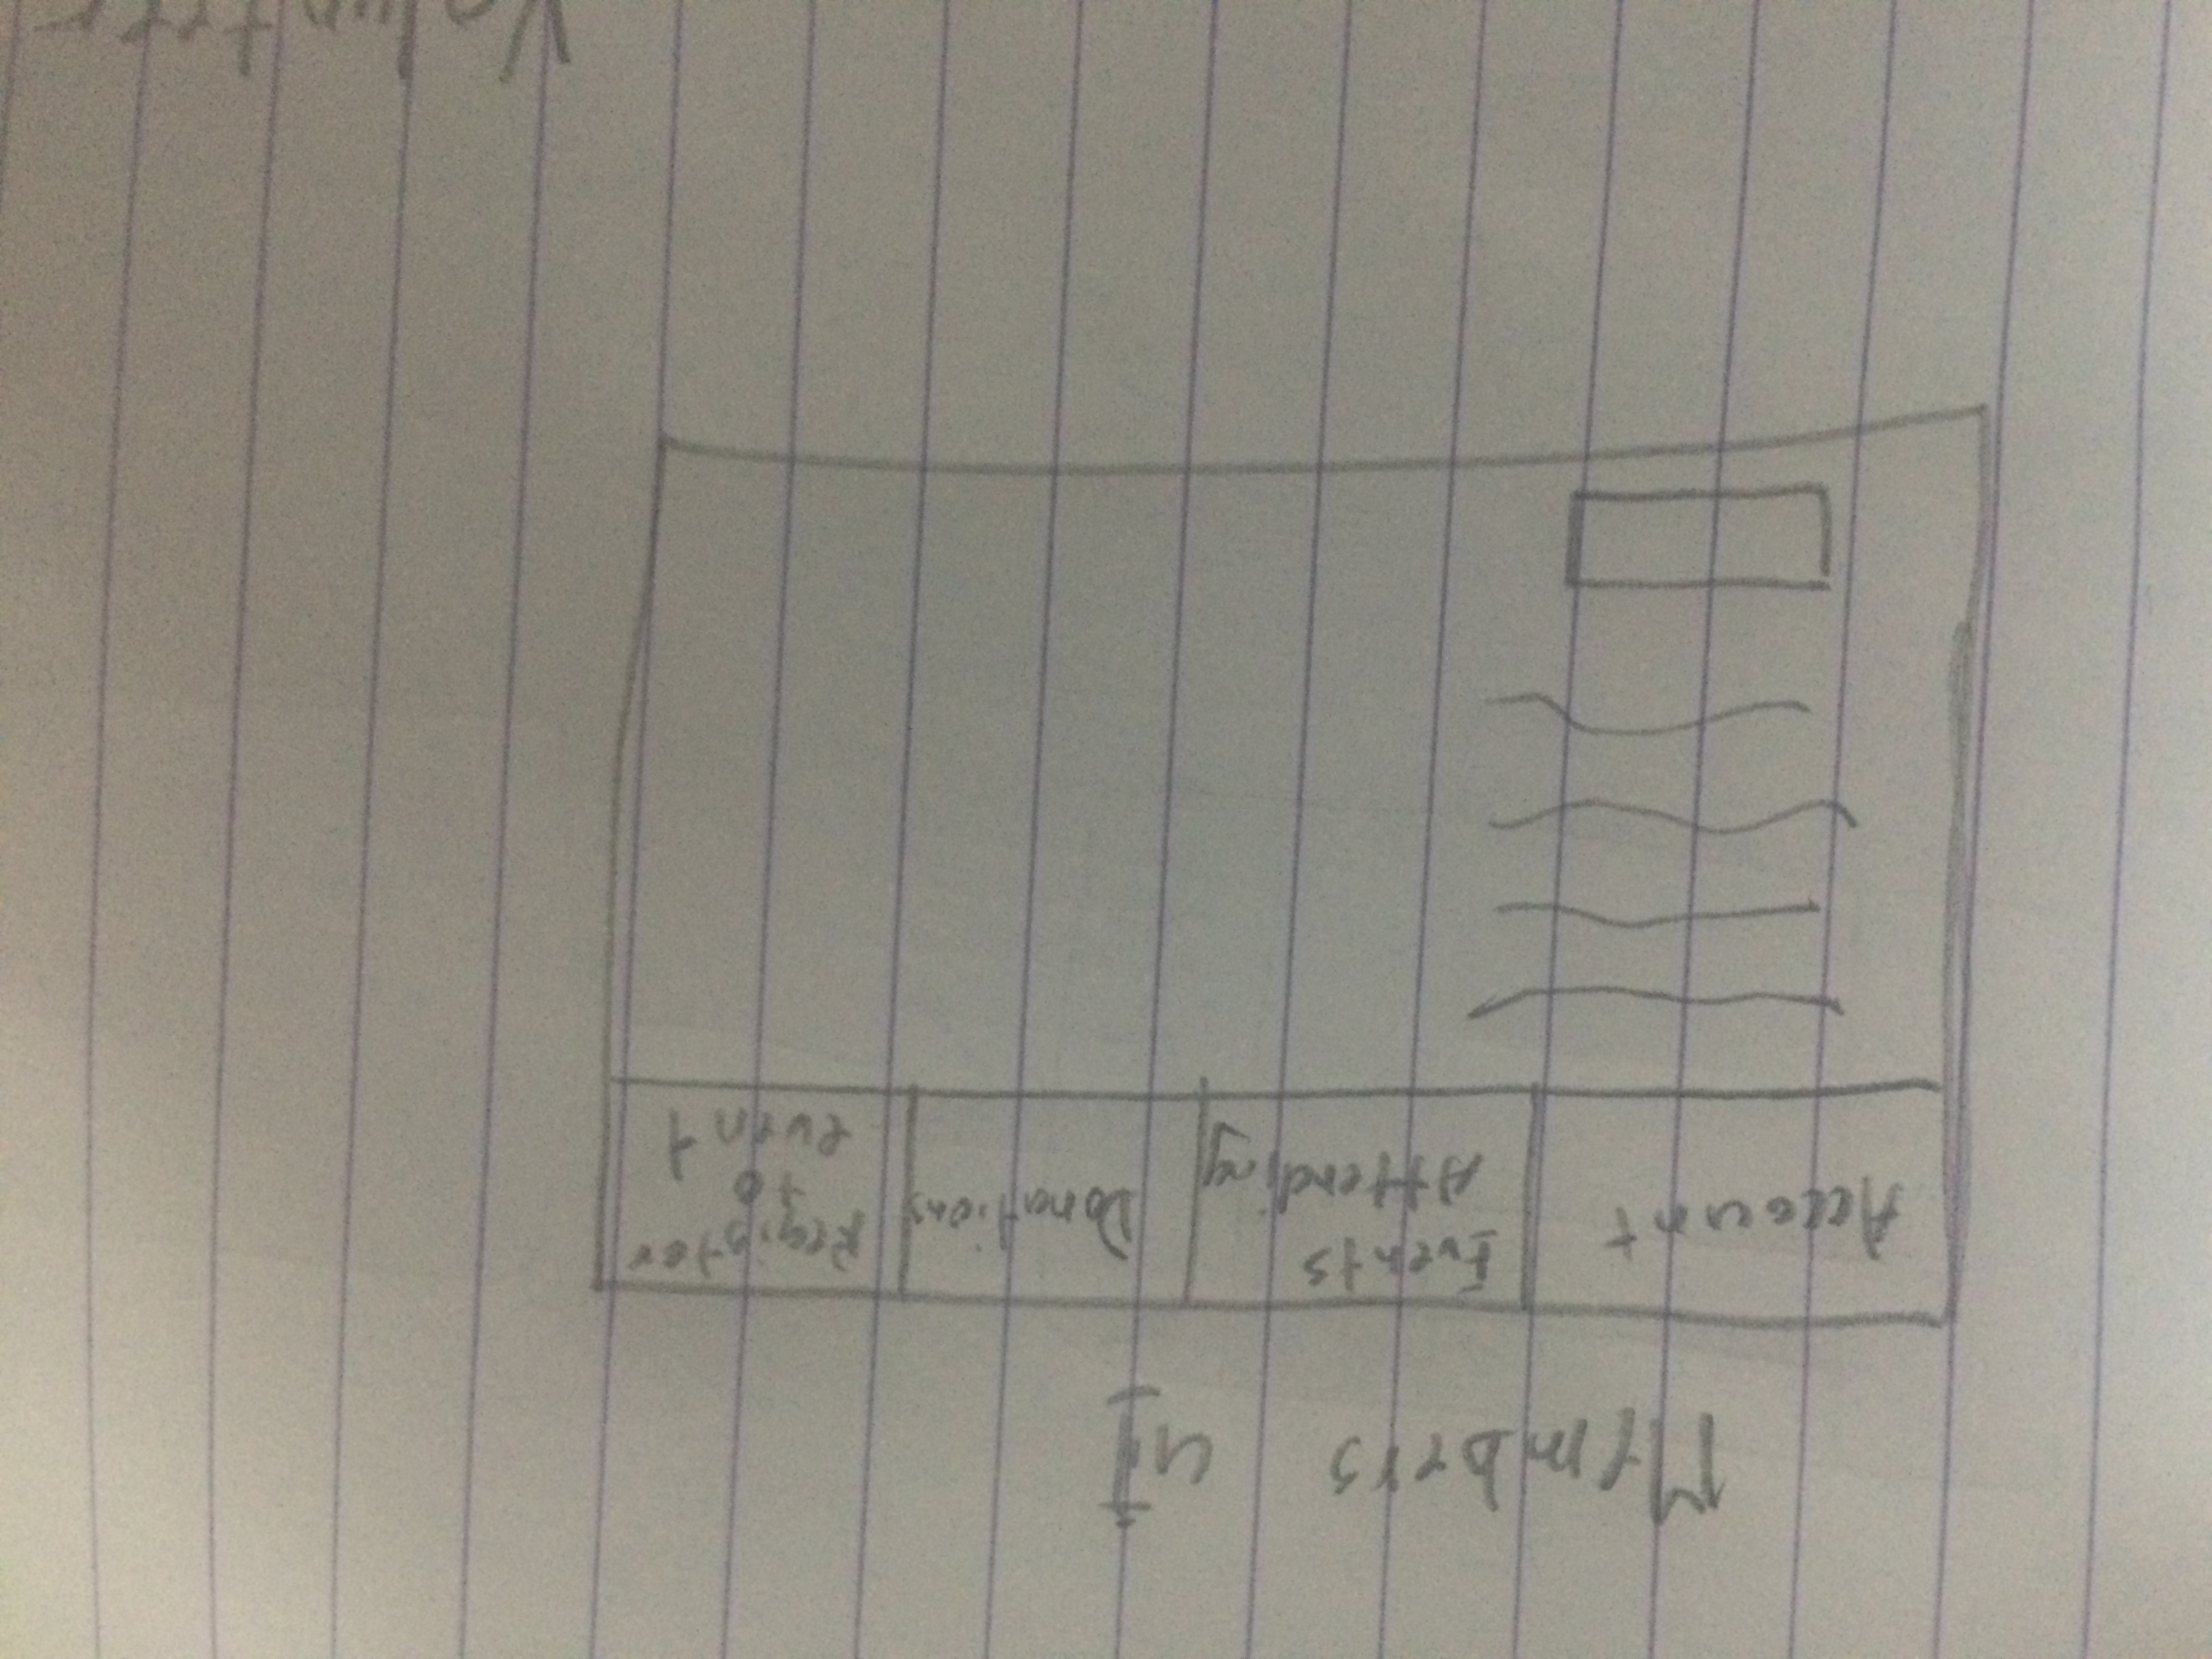 Members UI
Account
Events
Attending
Donations
Register
to
event
Volunteer